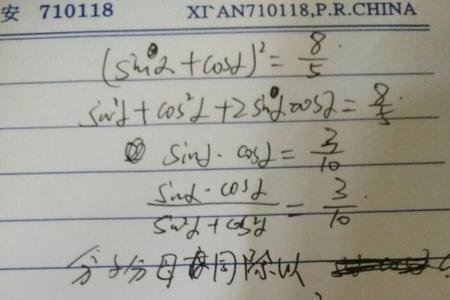 安 710118 XI'AN710118,P.R.CHINA
(sinα + cosα)² = 8/5
sin²α + cos²α + 2sinαcosα = 8/5
sinα · cosα = 3/10
sinα · cosα / sin²α + cos²α = 3/10
分子分母同除以